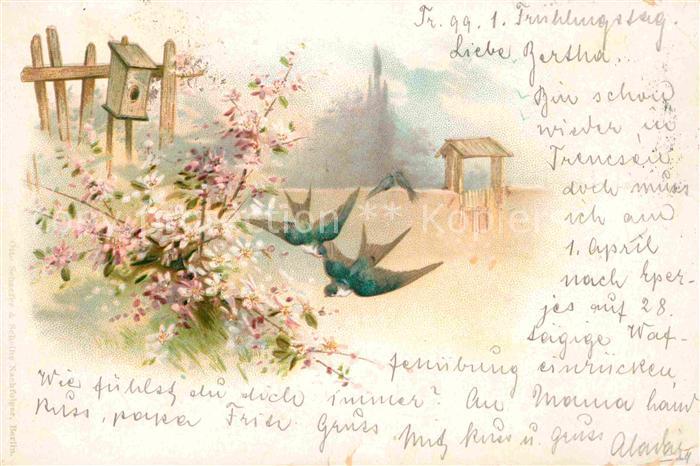 Tr. 99. 1. Frühlingstag.
Liebe Bertha.
Bin schon
wieder in
Trencsén
doch muss
ich am
1. April
nach Eper-
jes auf 28.
tägige Waf-
fenübung einrücken
Wie fühlst du dich immer? An Mama hand
Kuss, papa Gruss
Mit Kuss u. gruss Aladár
Schaefer & Scheibe Nachfolger, Berlin.